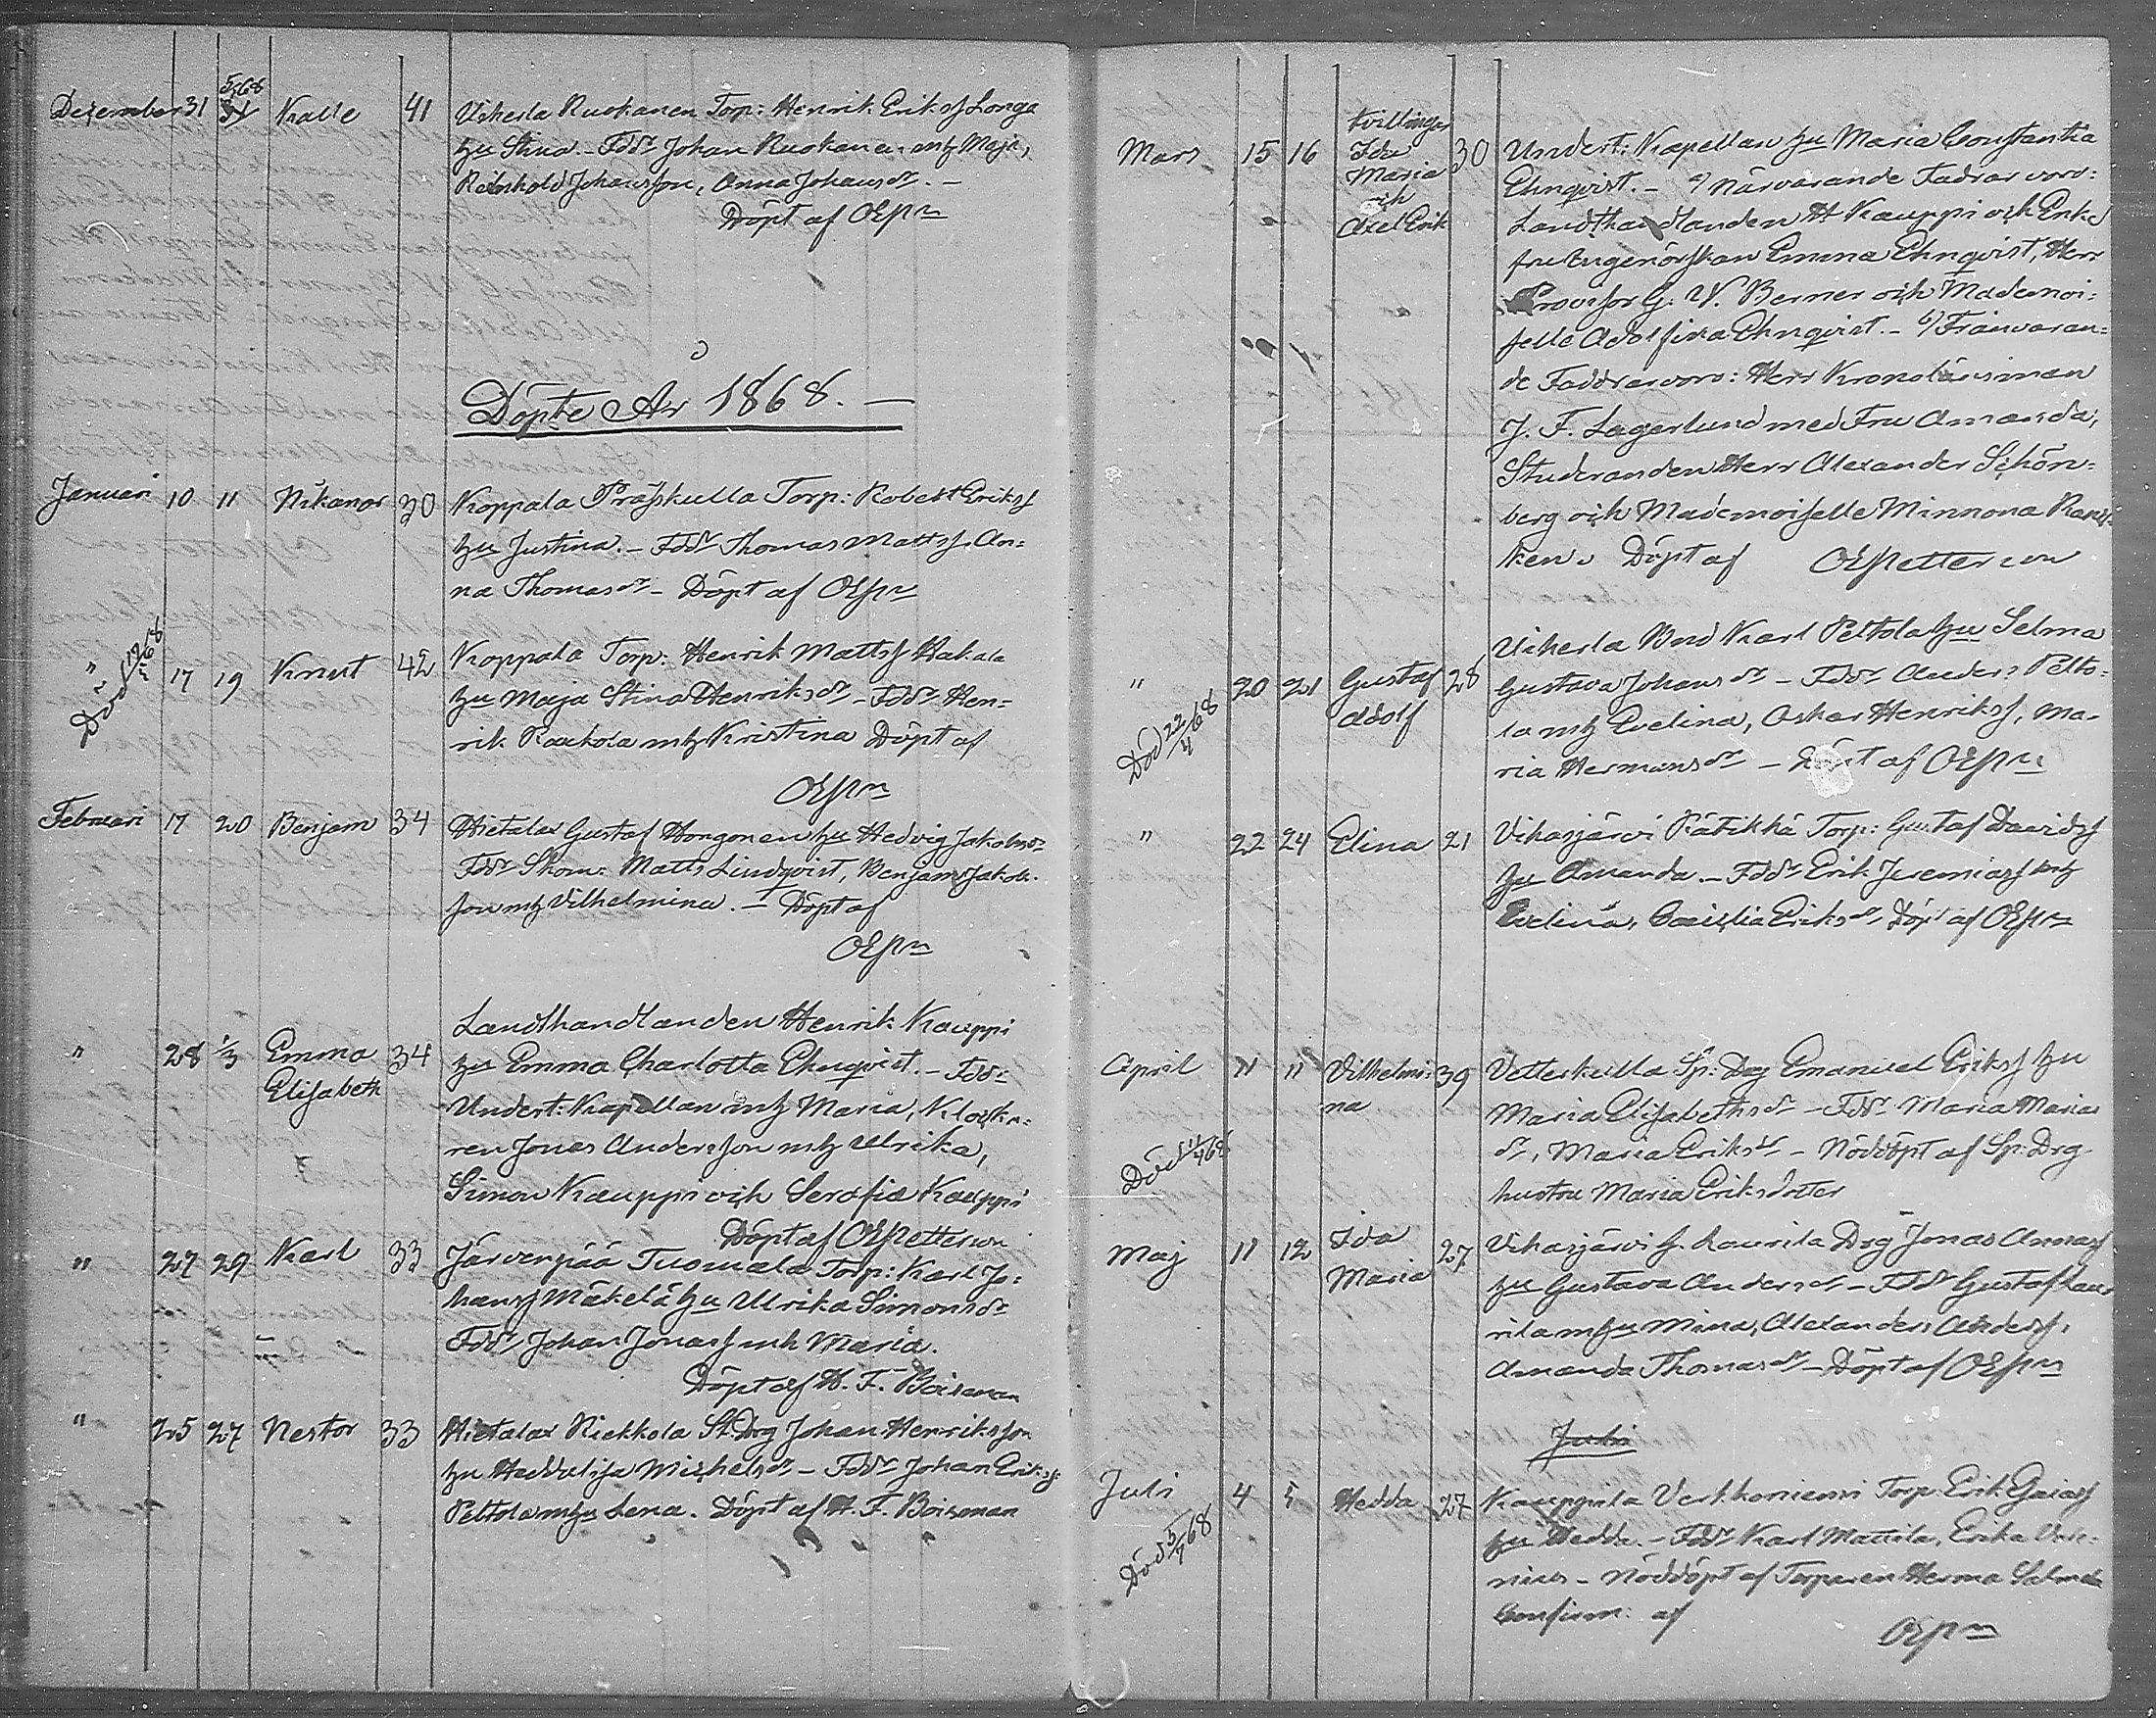 Dezember 31 5/1 68 31 Kalle 41 Uikerla Ruokanen Torp: Henrik Eriks Longa
hu Stina. - Fddr Johan Ruokanen mh Maja,
Reinhold Johansson, Anna Johansdr. -
Döpt af OEPn
Döpte År 1868. -
Januari 10 11 Nikanor 30 Koppala Präskulla Torp: Robert Eriks
hu Justina. - Fddr Thomas Matts, An=
na Thomasdr - Döpt af OEPn
" 17 19 Knut 42 Koppala Torp: Henrik Matts Hakala
Död 12/2 68
hu Maja Stina Henriksdr - Fddr Hen=
rik Kaukola mh Kristina Döpt af
OEPn
Februari 17 20 Benjam 34 Hietalax Gustaf Hongonen hu Hedvig Jakobsdr
Fddr Skom: Matts Lindqvist, Benjam Jakobs
son mh Vilhelmina. - Döpt af
OEPn
Landthandlanden Henrik Kauppi
" 28 1/3 Emma 34 hu Emma Charlotta Ehnqvist. - Fddr
Elisabeth Undert: Kapellan mh Maria, Klocka=
ren Jonas Andersson mh Ulrika,
Simon Kauppi och Serafia Kauppi
Döpt af OEPetterson
" 27 29 Karl 33 Järvenpää Tuomala Torp: Karl Jo=
hans Mäkelä hu Ulrika Simonsdr
Fddr Johan Jonas mh Maria.
Döpt af H. F. Boisman
" 25 27 Nestor 33 Hietalax Riekkola St.Drg Johan Henriksson
hu Heddalisa Michelsdr - Fddr Johan Eriks
Peltola mhu Lena. Döpt af H. F. Boisman
Mars 15 16 Tvillingar Ida Maria och Axel Erik 30 Undert: Kapellan hu Maria Constantia
Ehnqvist. - a/ Närvarande Faddrar voro:
Landthandlanden H Kauppi och Enke
fru Ingenörskan Emma Ehnqvist, Herr
Provisor G. V. Berner och Mademoi=
selle Adolfina Ehnqvist. - b/ Frånvaran=
de Faddrar voro: Herr Kronolänsman
J. F. Lagerlund med Fru Amanda,
Studeranden Herr Alexander Schön=
berg och Mademoiselle Minnona
ken. Döpt af OEPetterson
Uikerla Bnd Karl Peltola hu Selma
" 20 21 Gustaf Adolf 28 Gustava Johansdr - Fddr Anders Pelto=
Död 22/4 68
la mh Evelina, Oskar Henriks, Ma=
ria Hermansdr - Döpt af OEPn
" 22 24 Elina 21 Vihasjärvi Rätikkä Torp: Gustaf Davids
hu Amanda. - Fddr Erik Jeremias mh
Evelina, Cecilia Eriksdr Döpt af OEPn
April 11 11 Vilhelmi= 39 Vetterkulla Sp: Drg Emanuel Eriks hu
na Maria Elisabethsdr - Fddr Maria Marias
Död 11/4 68
dr, Maria Eriksdr - Nöddöpt af Sp: Drg
hustru Maria Eriksdotter
Maj 11 12 Ida 27 Vihasjärvi G. Laurila Drg Jonas Annas
Maria hu Gustava Andersdr - Fddr Gustaf Lau=
rila mhu Mina, Alexander Anders,
Amanda Thomasdr - Döpt af OEPn
Juli
Juli 4 5 Hedda 27 Kauppila Verkkoniemi Torp: Erik Gaias
Död 5/7 68
hu Hedda. - Fddr Karl Mattila, Erika
- Nöddöpt af Torparen Herma Salmela
Confirm: af
OEPn